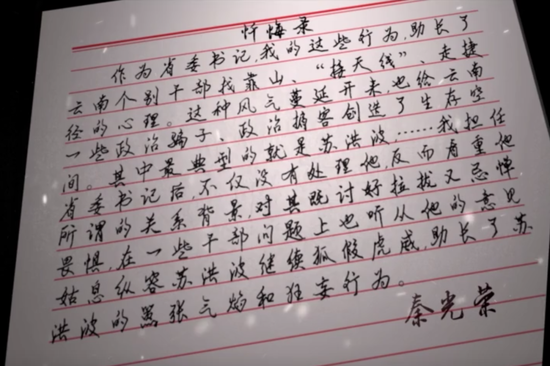 忏悔录
作为省委书记,我的这些行为,助长了
云南个别干部找靠山、“接天线”、走捷
径的心理。这种风气蔓延开来,也给云南
一些政治骗子、政治掮客创造了生存空
间。其中最典型的就是苏洪波……我担任
省委书记后,不仅没有处理他,反而看重他
所谓的关系背景,对其既讨好拉拢又忌惮
畏惧,在一些干部问题上也听从他的意见
姑息纵容苏洪波继续狐假虎威,助长了苏
洪波的嚣张气焰和狂妄行为。
秦光荣